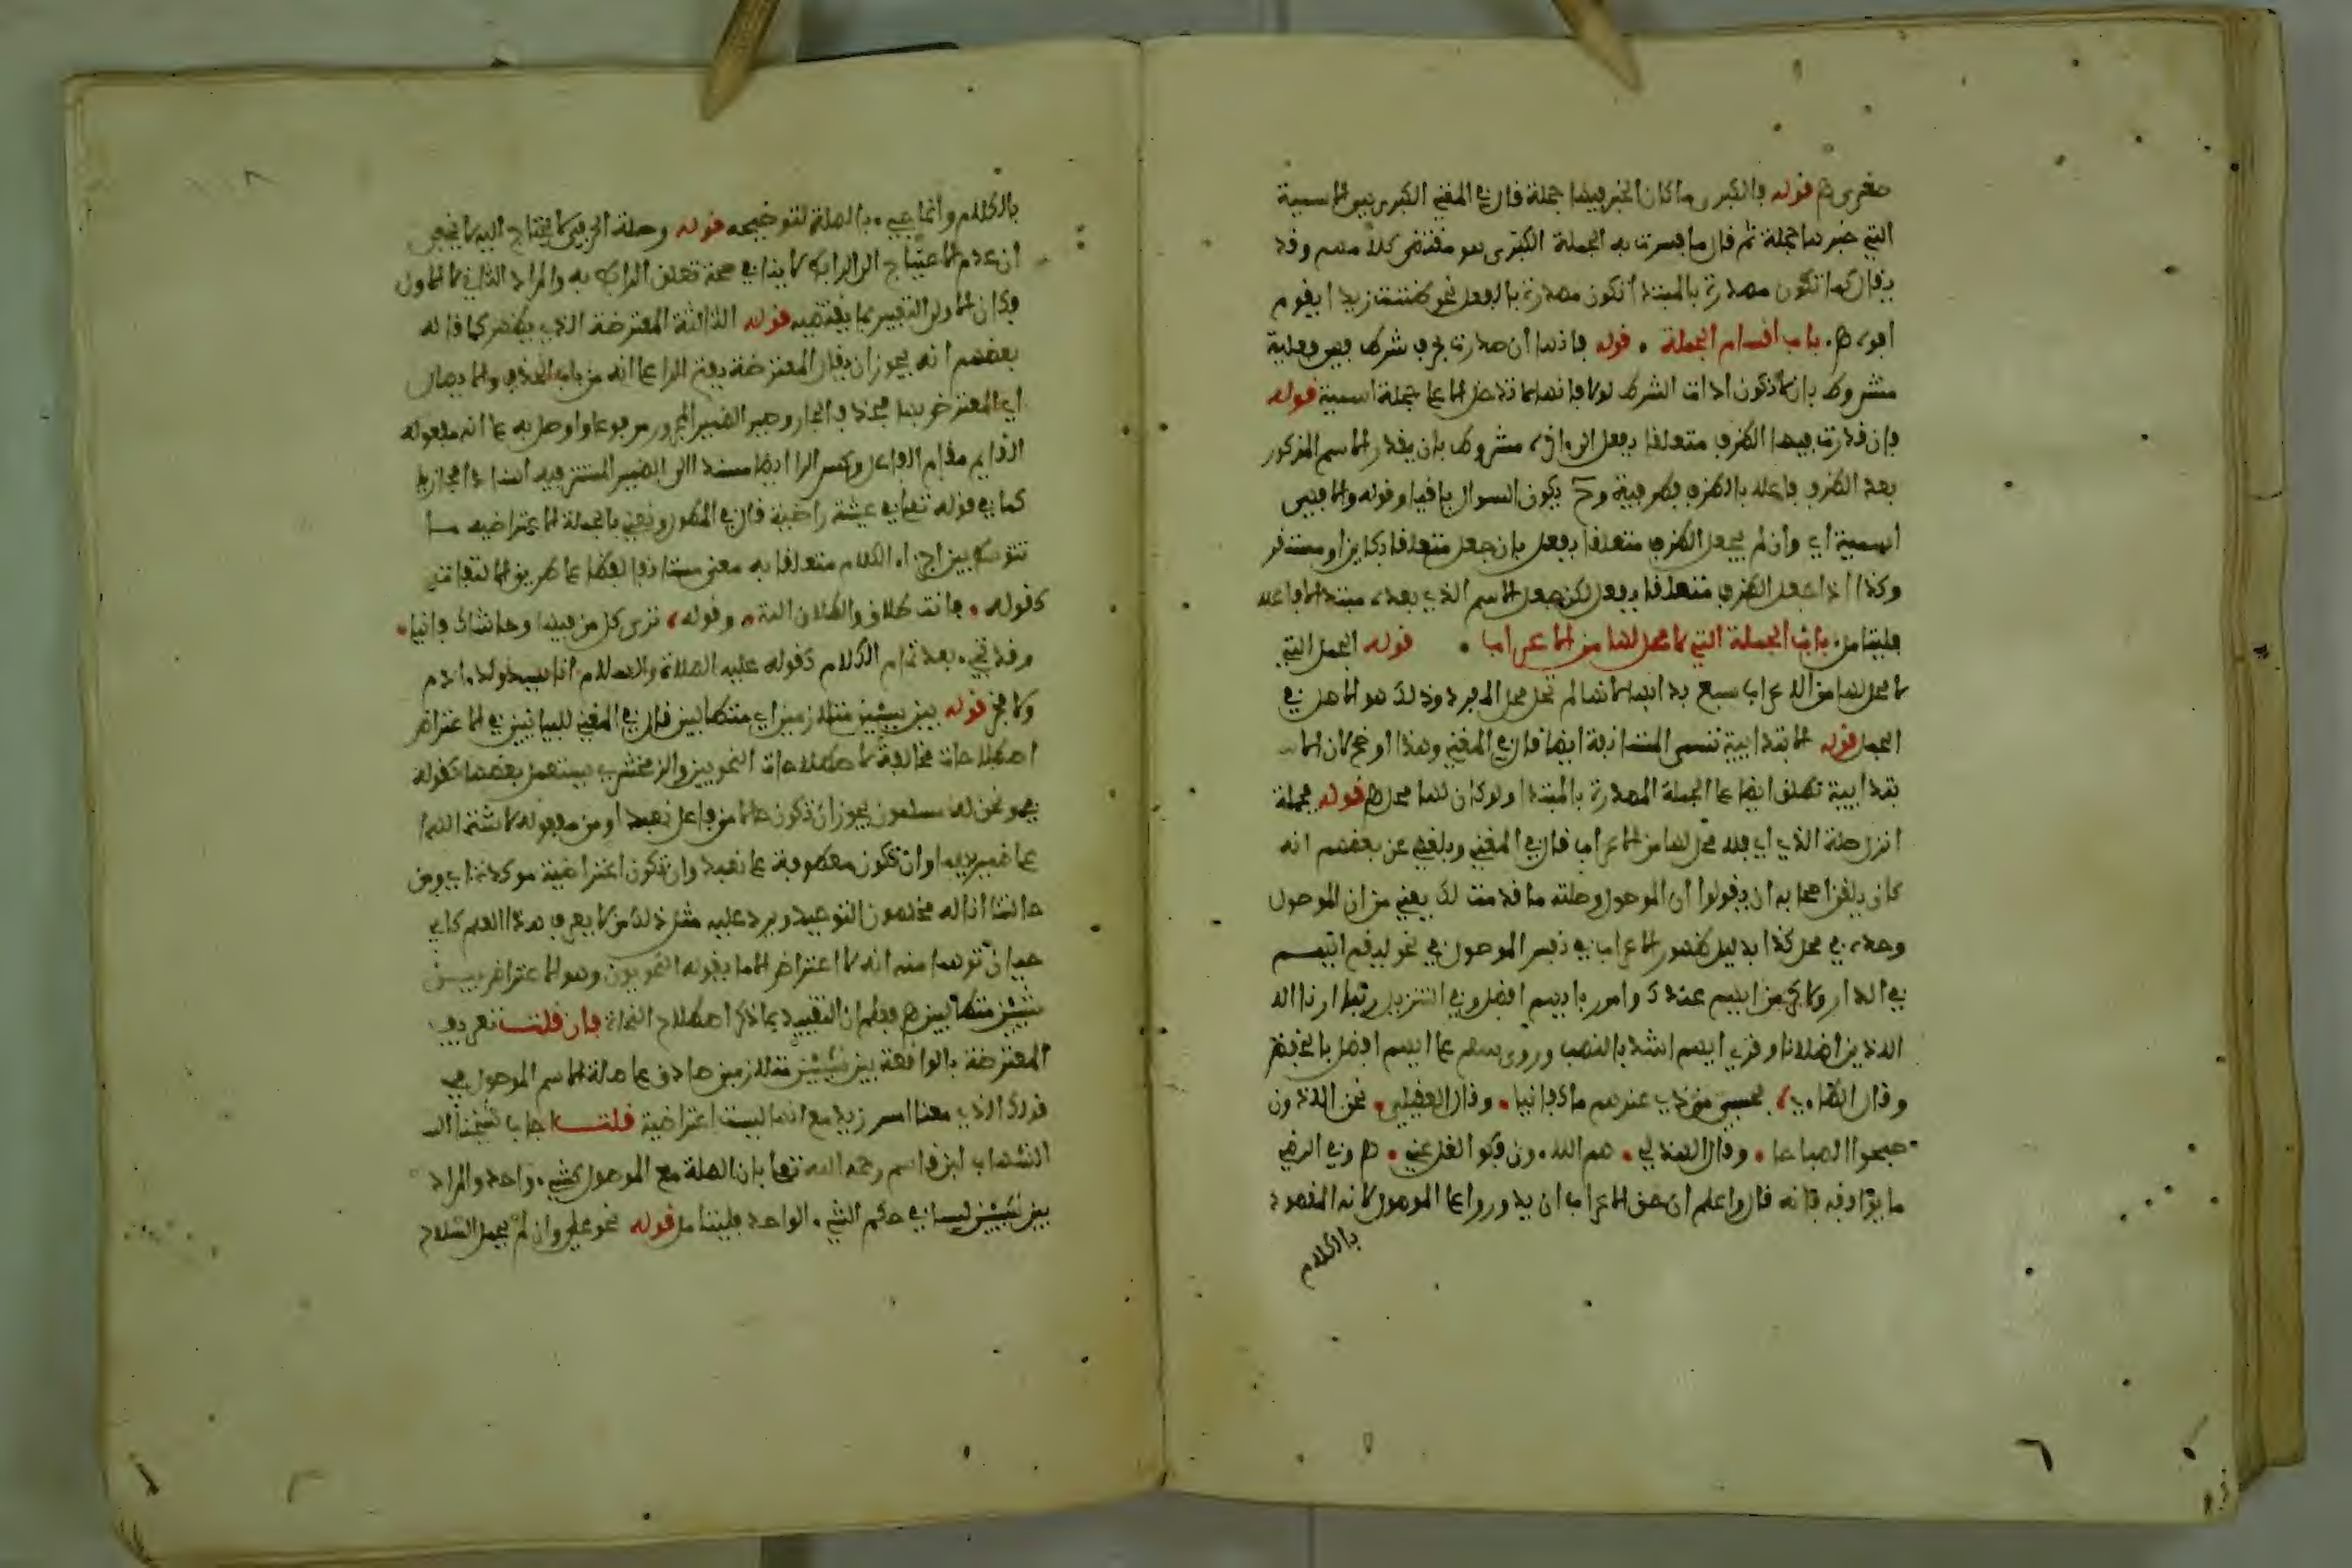 صغرى هـ قوله والكبرى ما كان الخبر فيها جملة قال في المغني الكبرى هي الاسمية
التي خبرها جملة ثم قال ما فسرت به الجملة الكبرى هو مقتضى كلامهم وقد
يقال كما تكون مصدرة بالمبتدا تكون مصدرة بالفعل نحو ظننت زيدا يقوم
ابوه هـ. باب اقسام الجملة . قوله فاذا ان صدرت بحرف شرط فهي فعلية
مشروط بان لا تكون ادات الشرط لولا فانها انما تدخل على جملة اسمية قوله
فان قدرت فيها الظرف متعلقا بفعل الى اخره مشروط بان يقدر الاسم المذكور
بعد الظرف فاعلا بالظرف فظرفية وح يكون السوال باقيا وقوله والا فهي
اسمية اي وان لم يجعل الظرف متعلقا بفعل بان جعل متعلقا بكاين او مستقر
وكذا اذا جعل الظرف متعلقا بفعل لكن جعل الاسم الذي بعده مبتدا لا فاعلا
فليتامل. باب الجملة التي لا محل لها من الاعراب . قوله الجمل التي
لا محل لها من الاعراب سبع بدا بها لانها لم تحل محل المفرد وذلك هو الاصل في
الجمل قوله الابتدايية تسمى المستانفة ايضا قال في المغني وهذا اوضح لان الا
بتدايية تطلق ايضا على الجملة المصدرة بالمبتدا ولو كان لها محل هـ قوله فجملة
انزل صلة الذي اي فلا محل لها من الاعراب قال في المغني وبلغني عن بعضهم انه
كان يلقن اصحابه ان يقولوا ان الموصول وصلته ما قدمت لك يعني من ان الموصول
وحده في محل كذا بدليل ظهور الاعراب في نفس الموصول في نحو ليقم ايهم
في الدار ولاكرمن ايهم عندك وامرر بايهم افضل وفي التنزيل ربنا ارنا الذ
الذين اضلانا وقرئ ايهم اشد بالنصب وروي سلم على ايهم افضل بالخفض
وقال الطاءي، فحسبي من ذي عندهم ما كفانيا . وقال العقيلي . نحن الذون
صبحوا الصباحا . وقال الهذلي . هم اللاءون فكوا الغل عني . هـ وفي الرضي
ما يوافقه فانه قال واعلم ان حق الاعراب ان يدور على الموصول لانه المقصود
بالكلام
بالكلام وانما جيء بالصلة لتوضيحه قوله وصلة الحرفي لا يحتاج اليه لا يخفى
ان عدم الاحتياج الى الرابط لا ينافي صحة تعلق الرابط به والمراد الثاني لا الاول
وكان الاولى التعبير بما يقتضيه قوله الثالثة المعترضة الذي يظهر كما قاله
بعضهم انه يجوز ان يقال المعترضة بفتح الرا على انه من باب الحذف والايصال
اي المعترض بها فحذف الجار وصير الضمير المجرور مرفوعا واوصل به على انه مفعوله
القايم مقام الفاعل وكسر الرا ايضا مسندا الى الضمير المستتر فيه اسنادا مجازيا
كما في قوله تعالى عيشة راضية قال في المطول ونعني بالجملة الاعتراضية ما
تتوسط بين اجزاء الكلام متعلقا به معنى مستانفا لفظا على طريق الالتفات
كقوله . فانت طلاق والطلاق الية . وقوله، ترى كل من فيها وحاشاك فانيا.
وقد تجيء بعد تمام الكلام كقوله عليه الصلاة والسلام انا سيد ولد ادم
ولا فخر قوله بين شيئين متلازمين اي متطالبين قال في المغني للبيانيين في الاعتراض
اصطلاحات مخالفة لاصطلاحات النحويين والزمخشري يستعمل بعضها كقوله
في ونحن له مسلمون يجوز ان تكون حالا من فاعل نعبد او من مفعوله لاشتمالها
على ضميريهما وان تكون معطوفة على نعبد وان تكون اعتراضية موكدة اي ومن
حالنا انا له مخلصون التوحيد ويرد عليه مثل ذلك من لا يعرف هذا العلم كابي
حيان توهما منه انه لا اعتراض الا ما يقوله النحويون وهو الاعتراض بين
شيئين متطالبين هـ فعلم ان التقييد بما ذكر اصطلاح النحاة فان قلت تعريف
المعترضة بالواقعة بين شيئين متلازمين صادق على صلة الاسم الموصول في
قولك الذي معنا اسر زيد مع انها ليست اعتراضية قلت اجاب شيخنا الـ
الشهاب ابن قاسم رحمه الله تعالى بان الصلة مع الموصول كشيء واحد والمراد
بين شيئين ليسا في حكم الشيء الواحد فليتامل قوله نحو علي وان لم يحمل السلاح